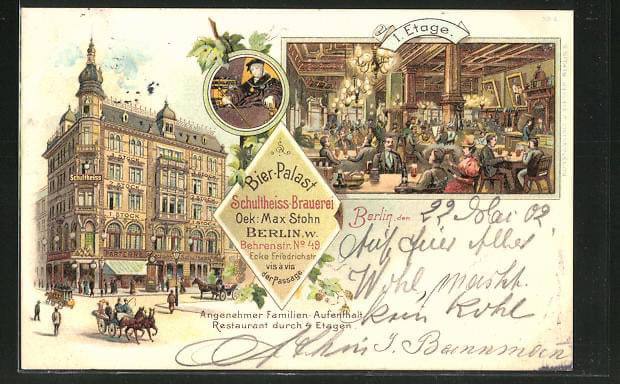 I. Etage.
Schultheiss
I. STOCK
Bier-Palast
Schultheiss-Brauerei
Oek: Max Stohn
BERLIN. W.
Behrenstr. No 49
Ecke Friedrichstr
vis à vis
der Passage
Berlin, den 22 Mai 02
Auf Alles
Wohl, macht
kein Kohl
Angenehmer Familien-Aufenthalt
Restaurant durch 4 Etagen.